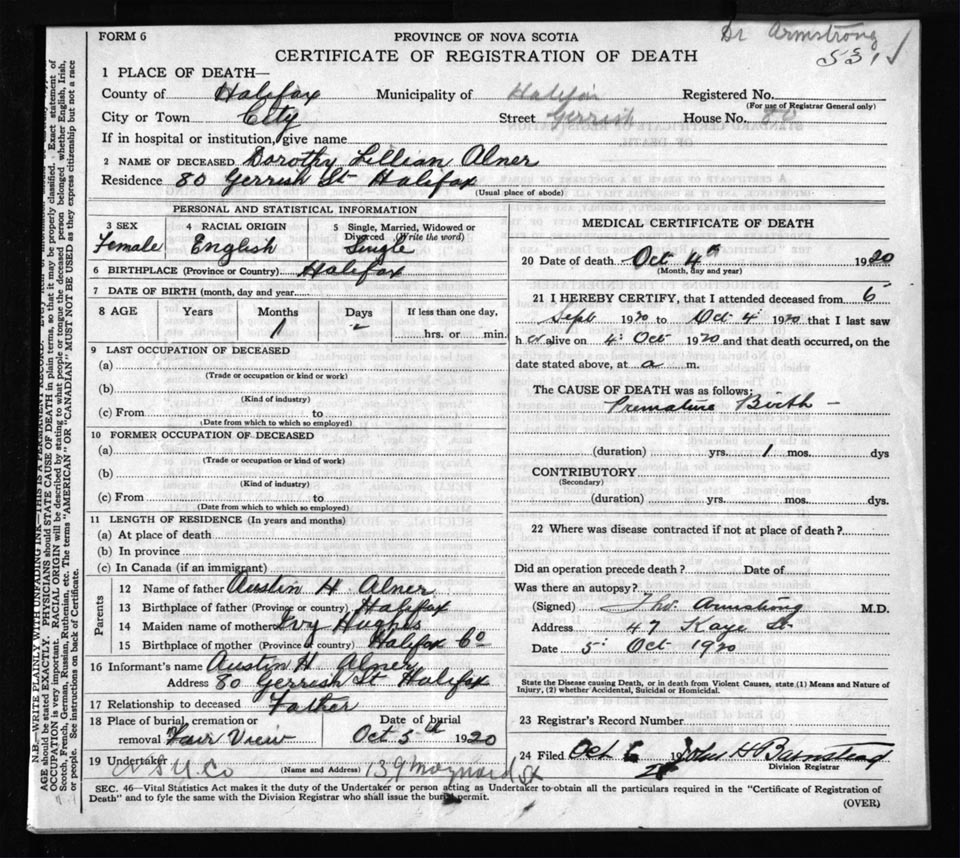 Dr Armstrong
FORM 6
PROVINCE OF NOVA SCOTIA
531
CERTIFICATE OF REGISTRATION OF DEATH
1 PLACE OF DEATH—
County of Halifax Municipality of Halifax Registered No.
(For use of Registrar General only)
City or Town City Street Gerrish House No. 80
If in hospital or institution, give name
2 NAME OF DECEASED Dorothy Lillian Alner
Residence 80 Gerrish St Halifax
(Usual place of abode)
PERSONAL AND STATISTICAL INFORMATION
3 SEX Female
4 RACIAL ORIGIN English
5 Single, Married, Widowed or Divorced (Write the word) Single
6 BIRTHPLACE (Province or Country) Halifax
7 DATE OF BIRTH (month, day and year)
8 AGE Years Months Days If less than one day,
1 2 hrs. or min.
9 LAST OCCUPATION OF DECEASED
(a)
(Trade or occupation or kind or work)
(b)
(Kind of industry)
(c) From to
(Date from which to which so employed)
10 FORMER OCCUPATION OF DECEASED
(a)
(Trade or occupation or kind of work)
(b)
(Kind of industry)
(c) From to
(Date from which to which so employed)
11 LENGTH OF RESIDENCE (In years and months)
(a) At place of death
(b) In province
(c) In Canada (if an immigrant)
Parents
12 Name of father Austin H Alner
13 Birthplace of father (Province or country) Halifax
14 Maiden name of mother Ivy Hughes
15 Birthplace of mother (Province or country) Halifax Co
16 Informant's name Austin H. Alner
Address 80 Gerrish St Halifax
17 Relationship to deceased Father
18 Place of burial, cremation or removal Fair View
Date of burial Oct 5th 1920
19 Undertaker N S U. Co (Name and Address) 139 Maynard St
MEDICAL CERTIFICATE OF DEATH
20 Date of death Oct 4th 1920
(Month, day and year)
21 I HEREBY CERTIFY, that I attended deceased from 6
Sept 1920 to Oct 4 1920 that I last saw
h er alive on 4 Oct 1920 and that death occurred, on the
date stated above, at a m.
The CAUSE OF DEATH was as follows:
Premature Birth -
(duration) yrs. 1 mos. dys
CONTRIBUTORY
(Secondary)
(duration) yrs. mos. dys.
22 Where was disease contracted if not at place of death?
Did an operation precede death? Date of
Was there an autopsy?
(Signed) Tho. Armstrong M.D.
Address 47 Kaye St
Date 5 Oct 1920
State the Disease causing Death, or in death from Violent Causes, state (1) Means and Nature of
Injury, (2) whether Accidental, Suicidal or Homicidal.
23 Registrar's Record Number
24 Filed Oct 6 1920 John H Barnstead
Division Registrar
SEC. 46—Vital Statistics Act makes it the duty of the Undertaker or person acting as Undertaker to obtain all the particulars required in the "Certificate of Registration of
Death" and to fyle the same with the Division Registrar who shall issue the burial permit.
(OVER)
N.B.—WRITE PLAINLY WITH UNFADING INK—THIS IS A PERMANENT RECORD.
AGE should be stated EXACTLY. PHYSICIANS should STATE CAUSE OF DEATH in plain terms, so that it may be properly classified. Exact statement of
OCCUPATION is very important. RACIAL ORIGIN will be described by stating to what people or tongue the deceased person belonged whether English, Irish,
Scotch, French, German, Russian, Ruthenian, etc. The terms "AMERICAN" OR "CANADIAN" MUST NOT BE USED as they express citizenship but not a race
or people. See instructions on back of Certificate.